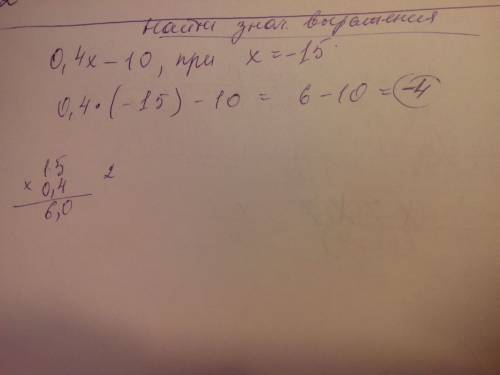 Найти знач. выражения
0,4x-10, при x=-15.
0,4·(-15)-10 = 6-10=-4
15
x 0,4
6,0
2